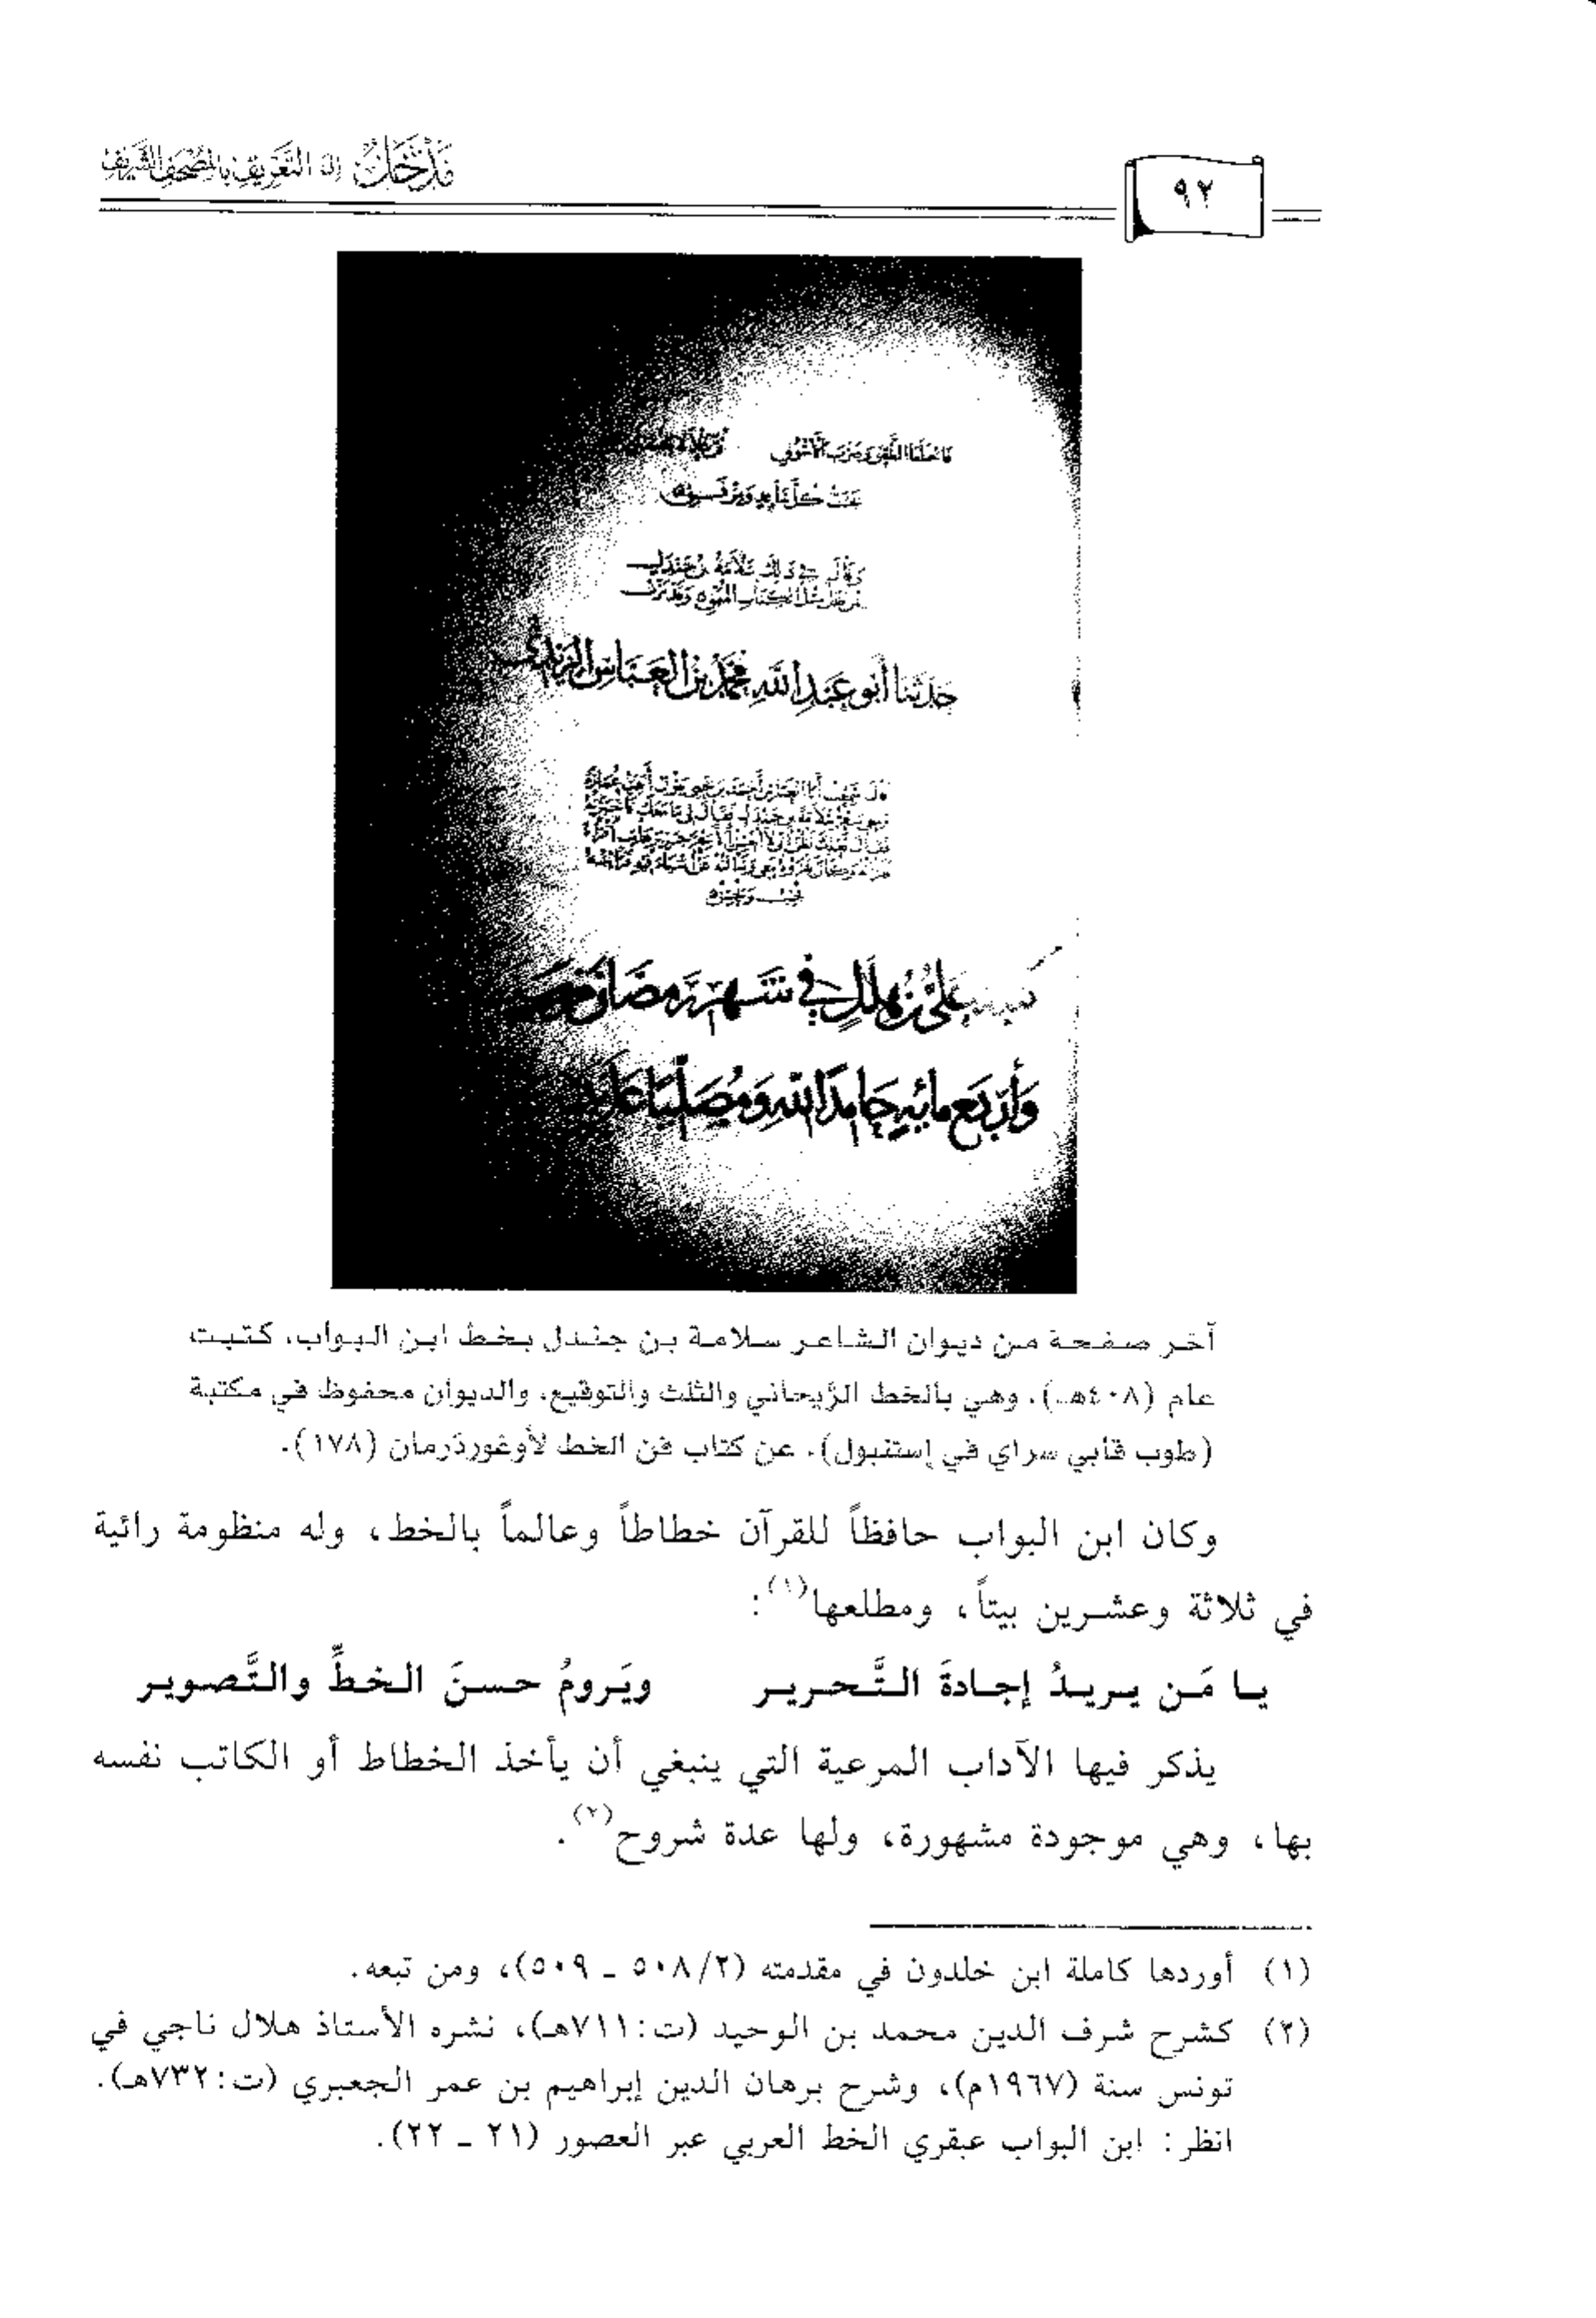 مَدْخَل إلى التَّعْرِيفِ بالمُصْحَفِ الشَّرِيف
٩٢
حدثنا أبو عبد الله محمد بن العباس اليزيدي
علي بن هلال في شهر رمضان
وأربع مائه حامدا لله ومصليا على
آخر صفحة من ديوان الشاعر سلامة بن جندل بخط ابن البواب، كتبت
عام (٤٠٨هـ)، وهي بالخط الرَّيحاني والثلث والتوقيع، والديوان محفوظ في مكتبة
(طوب قابي سراي في إستنبول)، عن كتاب فن الخط لأوغوردَرمان (١٧٨).
وكان ابن البواب حافظاً للقرآن خطاطاً وعالماً بالخط، وله منظومة رائية
في ثلاثة وعشرين بيتاً، ومطلعها(١):
يا مَن يريدُ إجادةَ التَّحرير ويَرومُ حسنَ الخطِّ والتَّصوير
يذكر فيها الآداب المرعية التي ينبغي أن يأخذ الخطاط أو الكاتب نفسه
بها، وهي موجودة مشهورة، ولها عدة شروح(٢).
(١) أوردها كاملة ابن خلدون في مقدمته (٥٠٨/٢ ـ ٥٠٩)، ومن تبعه.
(٢) كشرح شرف الدين محمد بن الوحيد (ت:٧١١هـ)، نشره الأستاذ هلال ناجي في
تونس سنة (١٩٦٧م)، وشرح برهان الدين إبراهيم بن عمر الجعبري (ت:٧٣٢هـ).
انظر: ابن البواب عبقري الخط العربي عبر العصور (٢١ ـ ٢٢).